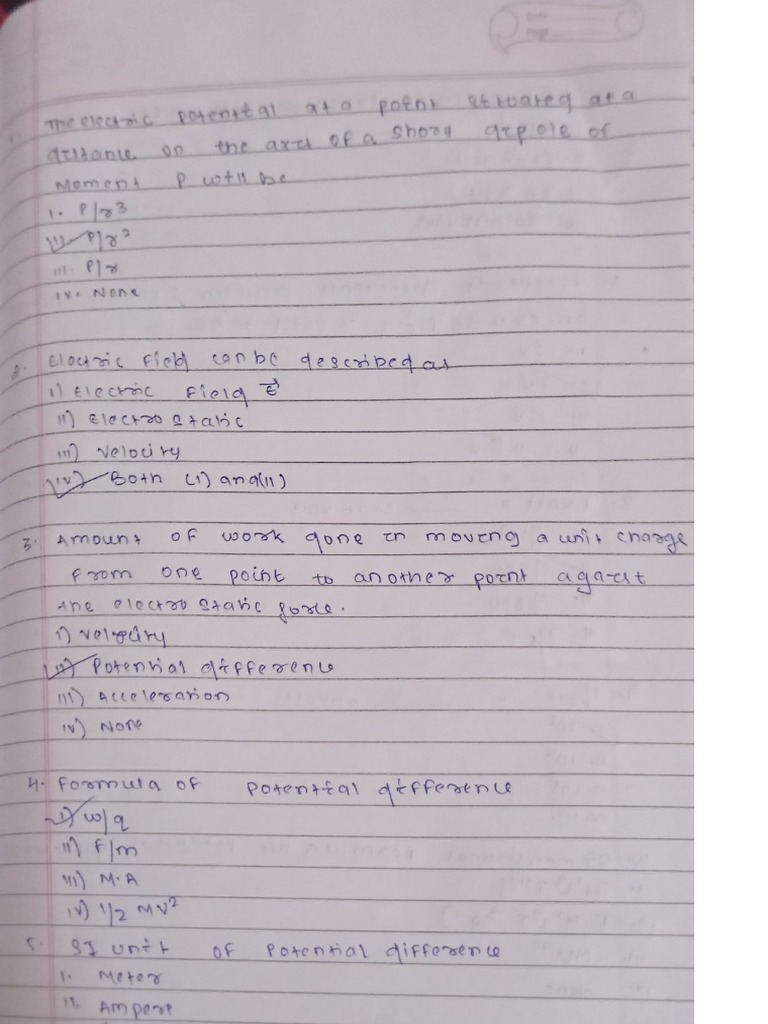 The electric potential at a point situated at a
distance on the axis of a short dipole of
moment P will be
i. P/r3
ii. P/r2
iii. P/r
iv. None
2. Electric Field can be described as
i) Electric Field E
ii) Electrostatic
iii) Velocity
iv) Both (i) and (ii)
3. Amount of work done in moving a unit charge
from one point to another point against
the electrostatic force.
i) velocity
ii) Potential difference
iii) Acceleration
iv) None
4. Formula of Potential difference
i) w/q
ii) F/m
iii) M.A
iv) 1/2 MV2
5. SI unit of Potential difference
i. Meter
ii. Ampere